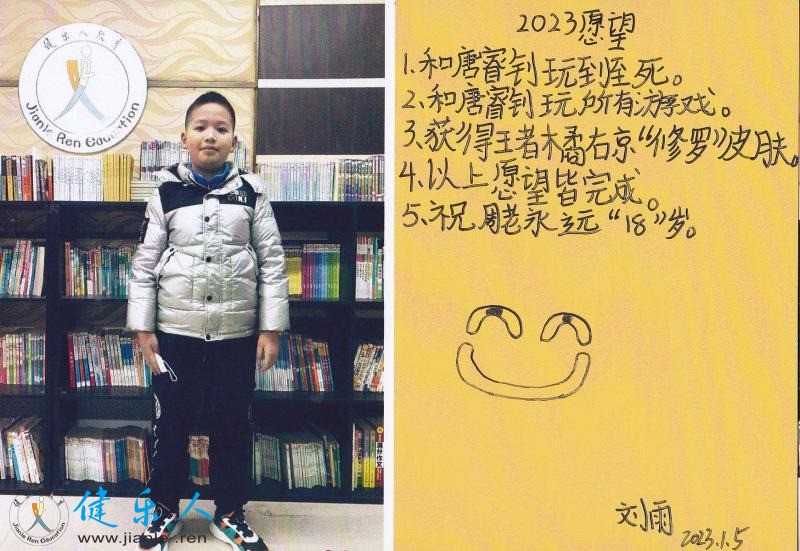 健乐人教育
Jianle Ren Education
2023愿望
1.和唐睿钊玩到至死。
2.和唐睿钊玩所有游戏。
3.获得王者木橘右京“修罗”皮肤。
4.以上愿望皆完成。
5.祝周老永远“18”岁。
刘雨
2023.1.5
满分作文
Jianle Ren Education
健乐人
www.jianle.ren